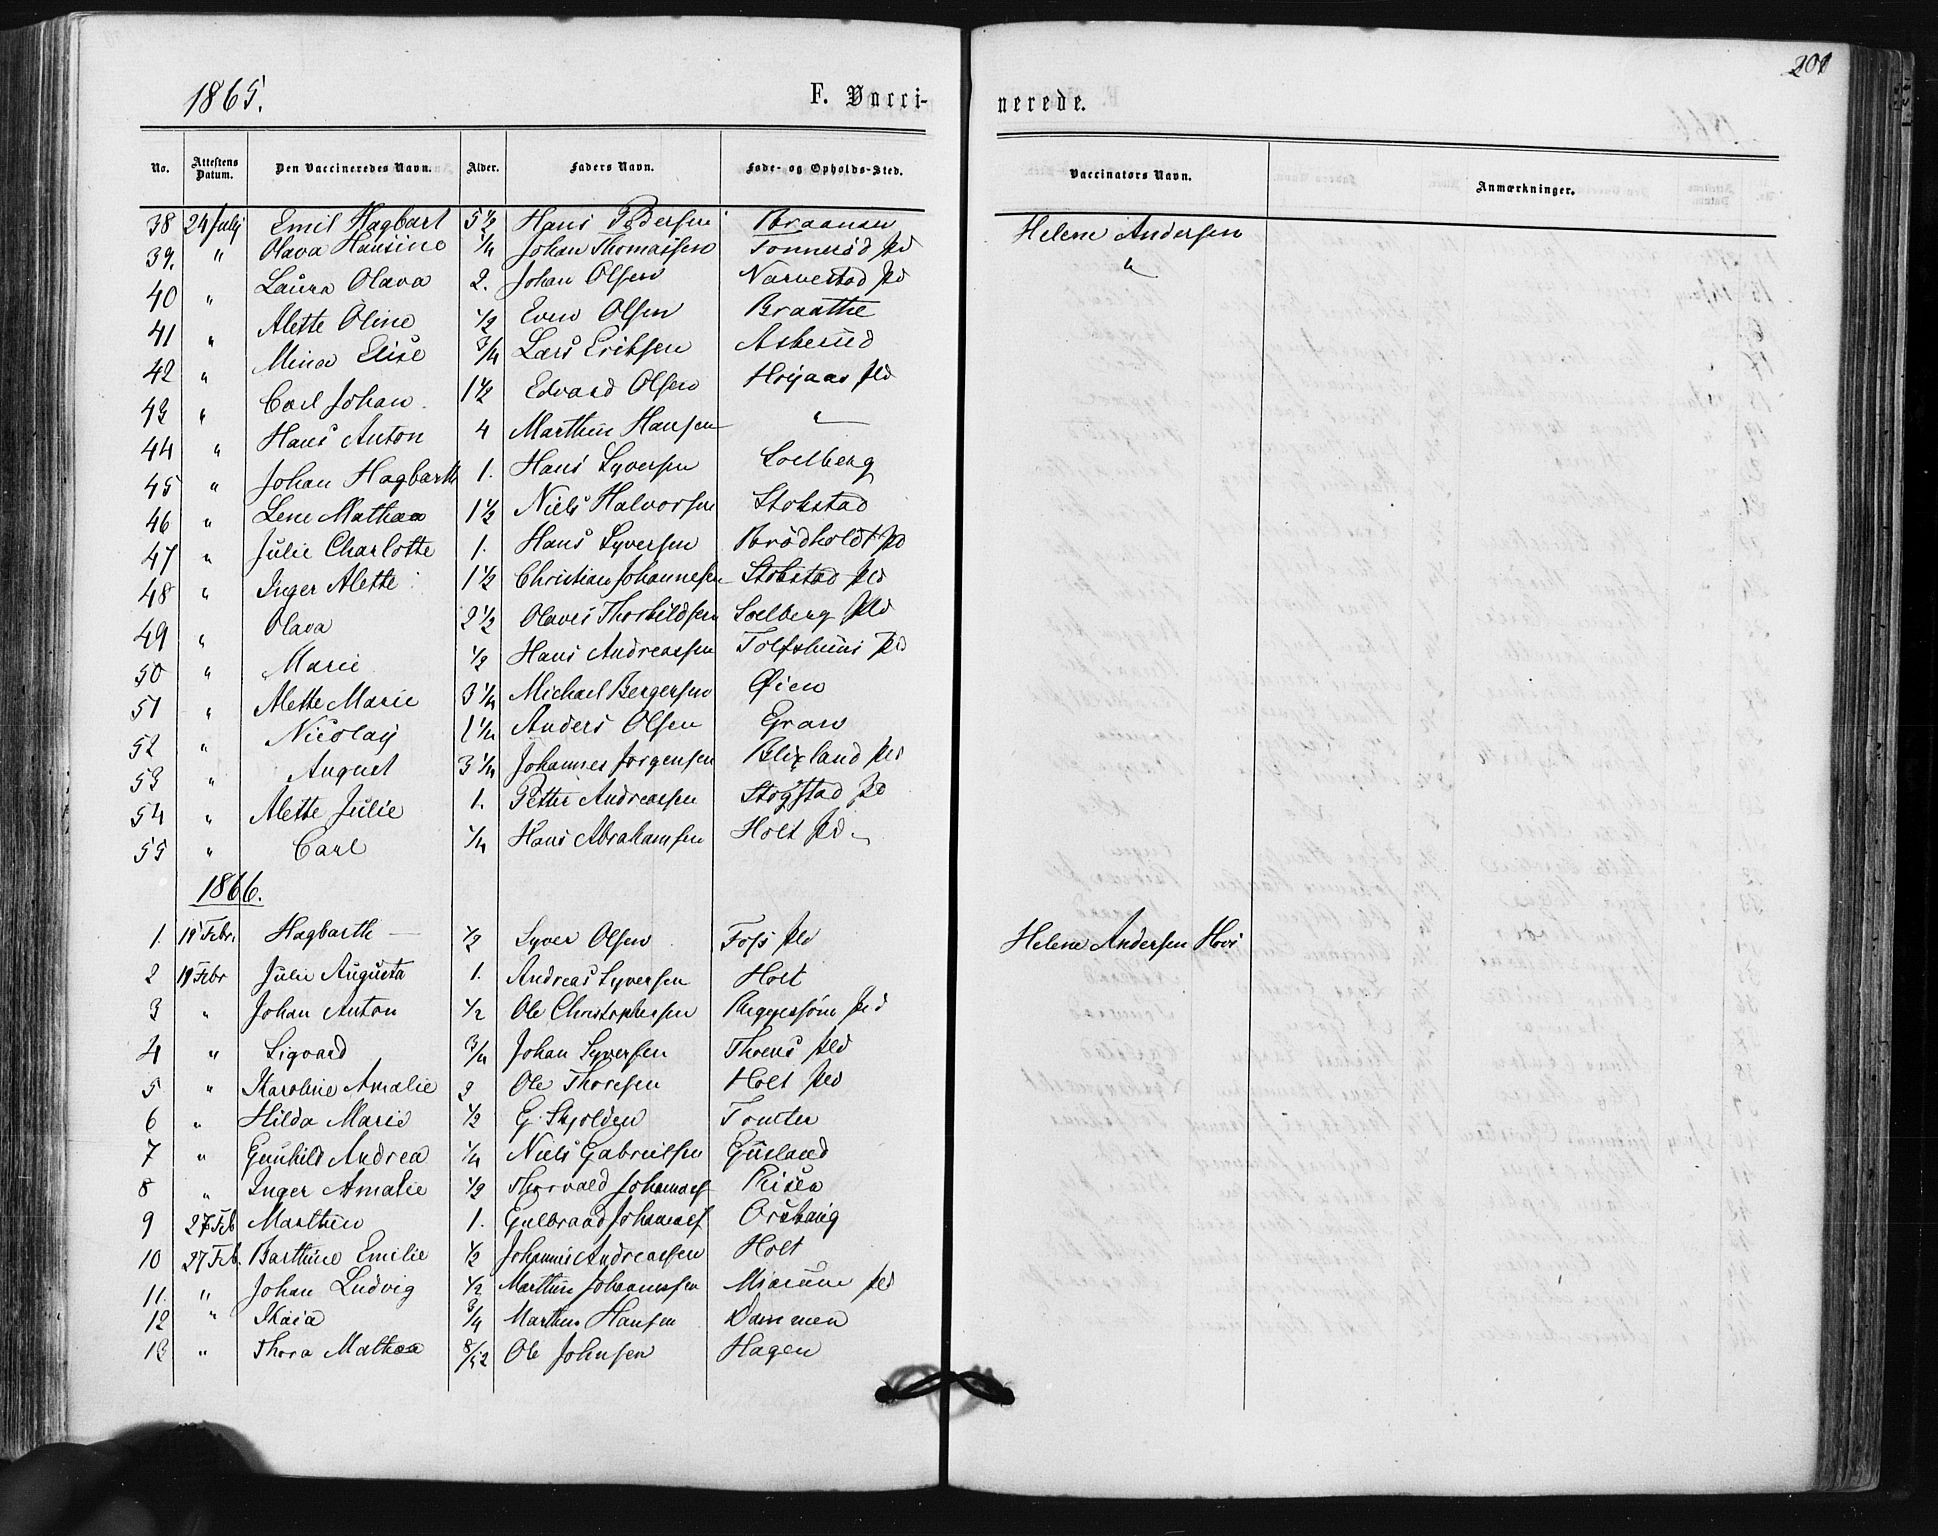 201
1865.
F. Vacci-
nerede.
No. Attestens Datum. Den Vaccineredes Navn. Alder. Faders Navn. Føde- og Opholds-Sted. Vaccinators Navn. Anmærkninger.
38 24 July Emil Hagbart 5 1/2 Hans Pedersen Braanen Helene Andersen
39. " Olava Hansine 1/4 Johan Thomassen Tonnerød pld "
40 " Laura Olava 2. Johan Olsen Narvestad pld
41 " Alette Oline 1/2 Even Olsen Braathe
42 " Mina Elise 3/4 Lars Eriksen Askerud
43 " Carl Johan 1 1/2 Edvard Olsen Høyaas pld
44 " Hans Anton 4 Marthin Hansen "
45 " Johan Hagbarth 1. Hans Syversen Solberg
46 " Lene Mathea 1 1/2 Niels Halvorsen Stokstad
47 " Julie Charlotte 1. Hans Syversen Brødholdt pld
48 " Inger Alette 1 1/2 Christian Johannesen Stokstad pld
49 " Olava 2 1/2 Olaves Thorkildsen Solberg pld
50 " Marie 1/2 Hans Andreassen pld
51 " Alette Marie 3 1/4 Michael Bergersen Øien
52 " Nicolay 1 1/4 Anders Olsen Gran
53 " August 3 1/4 Johannes Jørgensen Blixland pld
54 " Alette Julie 1. Petter Andreassen Stogstad pld
55 " Carl 1/4 Hans Abrahamsen Holt pld
1866.
1. 19 Febr. Hagbarth 1/2 Syver Olsen Foss pld Helene Andersen Hovi
2 19 Febr Julie Augusta 1. Andreas Syversen Holt
3 " Johan Anton 1/2 Ole Christophersen pld
4 " Sigvard 3/4 Johan Syversen Thoens pld
5 " Karoline Amalie 2 Ole Thoresen Holt pld
6 " Hilda Marie 1/2 G. Skjolden Tomter
7 " Gunhild Andrea 1/4 Niels Gabrielsen Gusland
8 " Inger Amalie 1/2 Thorvald Johannes Risen
9 27 Feb Marthin 1. Gulbrand Johannes
10 27 Feb. Barthine Emilie 1/2 Johannis Andreassen Holt
11. " Johan Ludvig 1/2 Marthin Johannessen pld
12 " Kaia 3/4 Marthin Hansen Dammen
13 " Thora Mathea 8/12 Ole Johnsen Hagen